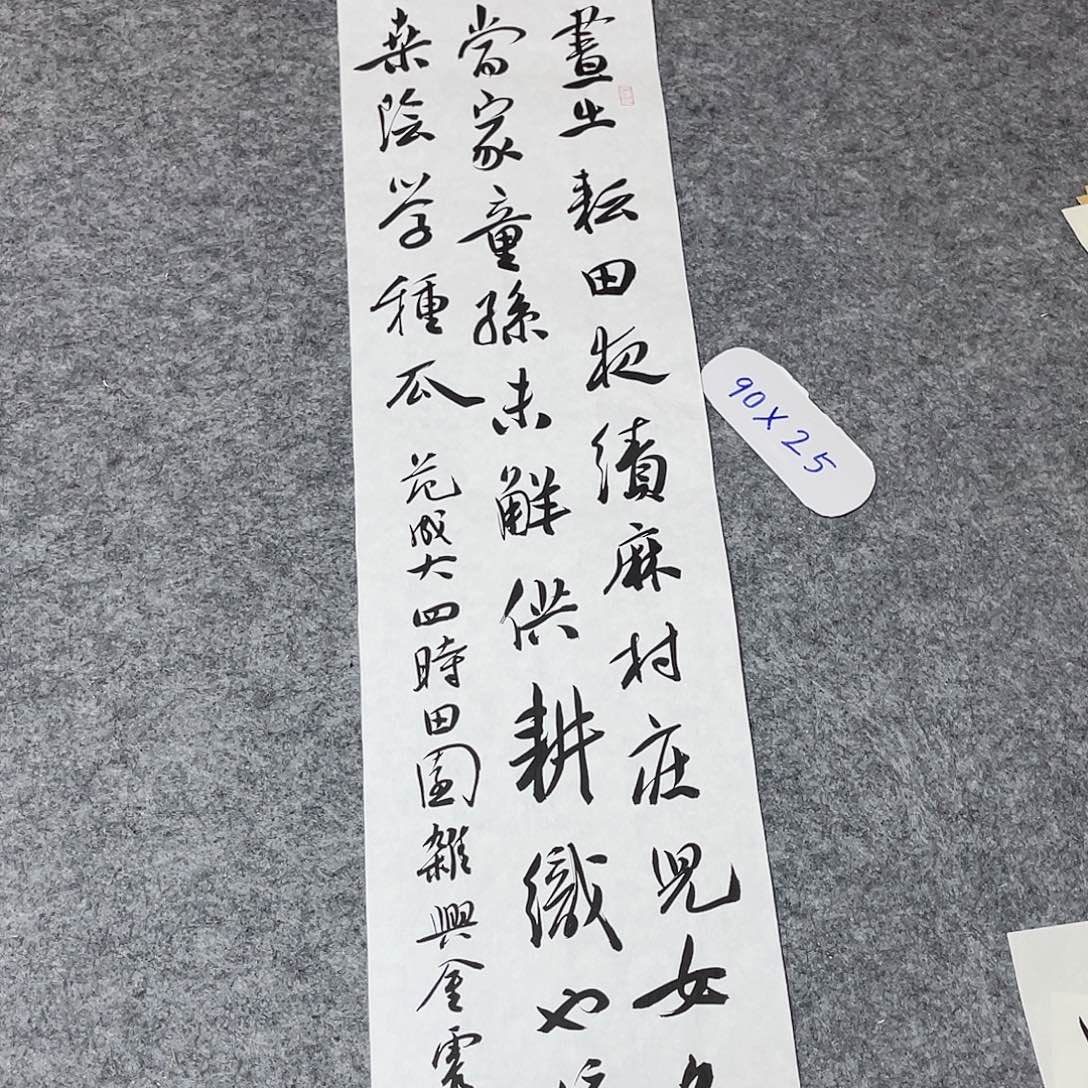 晝出耘田夜績麻村莊兒女
當家童孫未解供耕織也
桑陰学種瓜
范成大四時田園雜興金
90×25